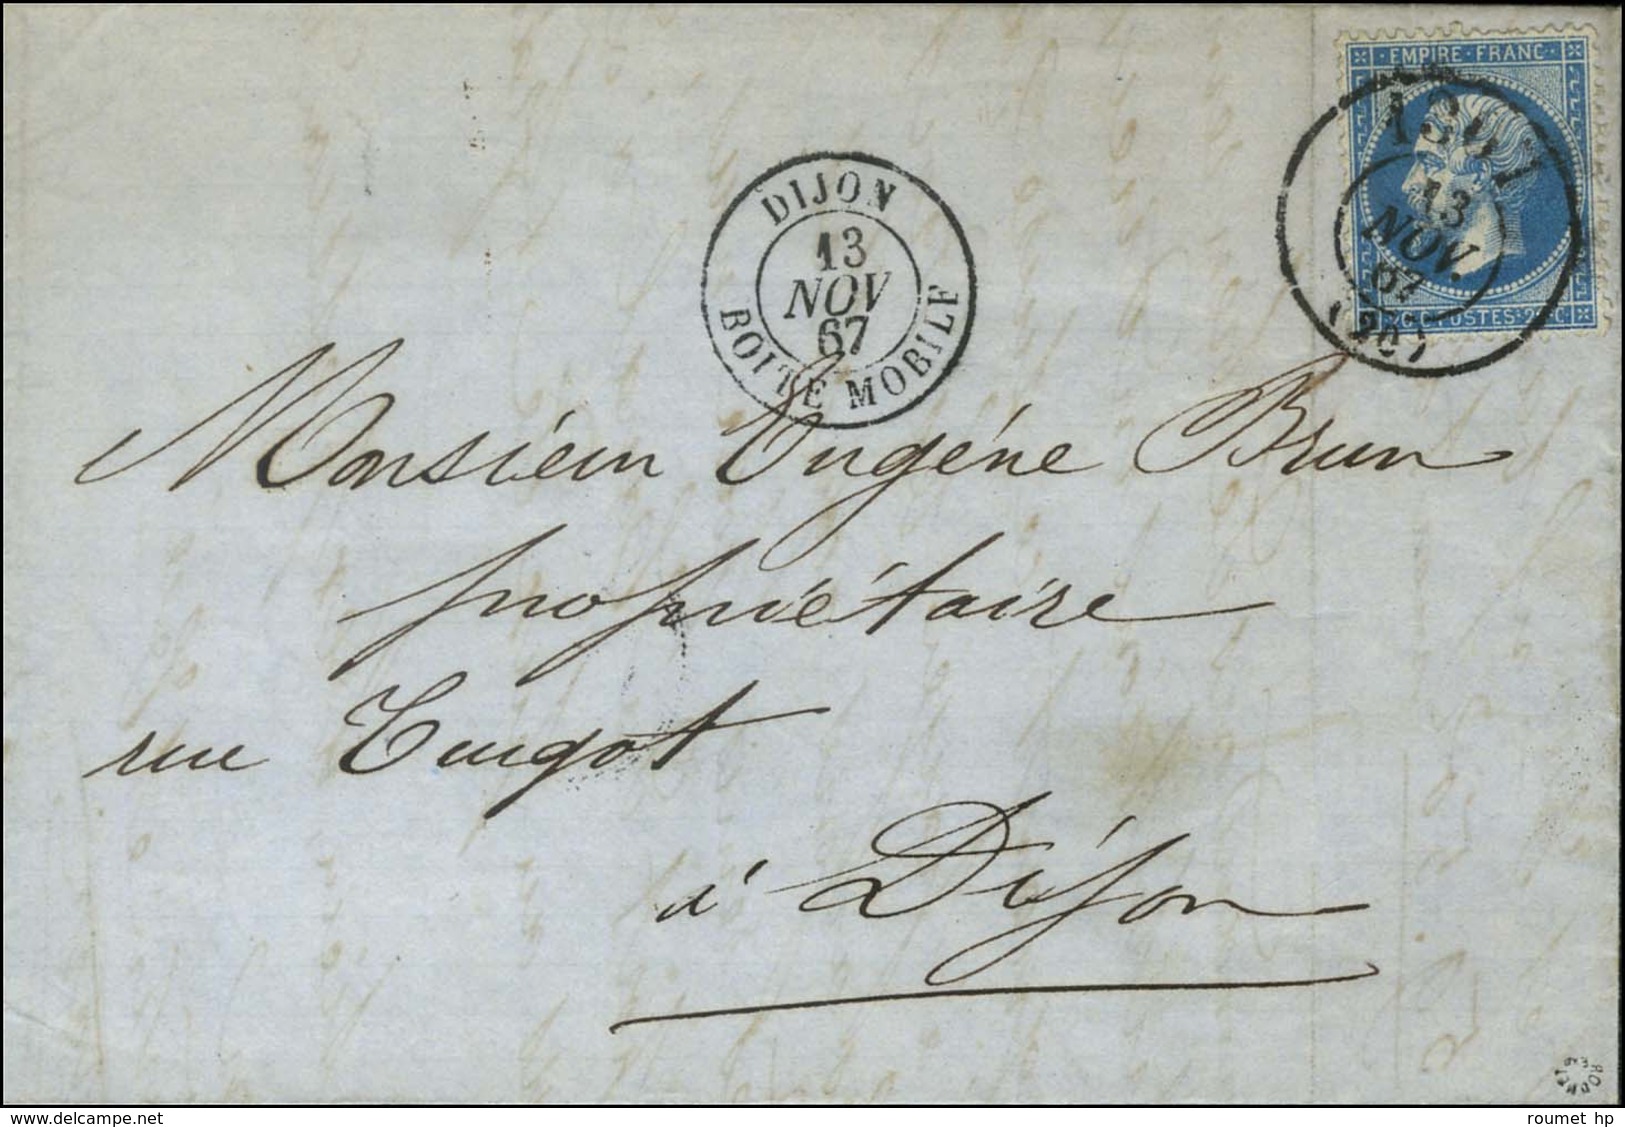 EMPIRE · FRANC ·
20 C. POSTES 20 C.
13
NOV.
67
(20)
DIJON
13
NOV
67
BOITE MOBILE
Monsieur Eugéne Brun
propriétaire
rue Turgot
à Dijon
ROUMET
roumet hp